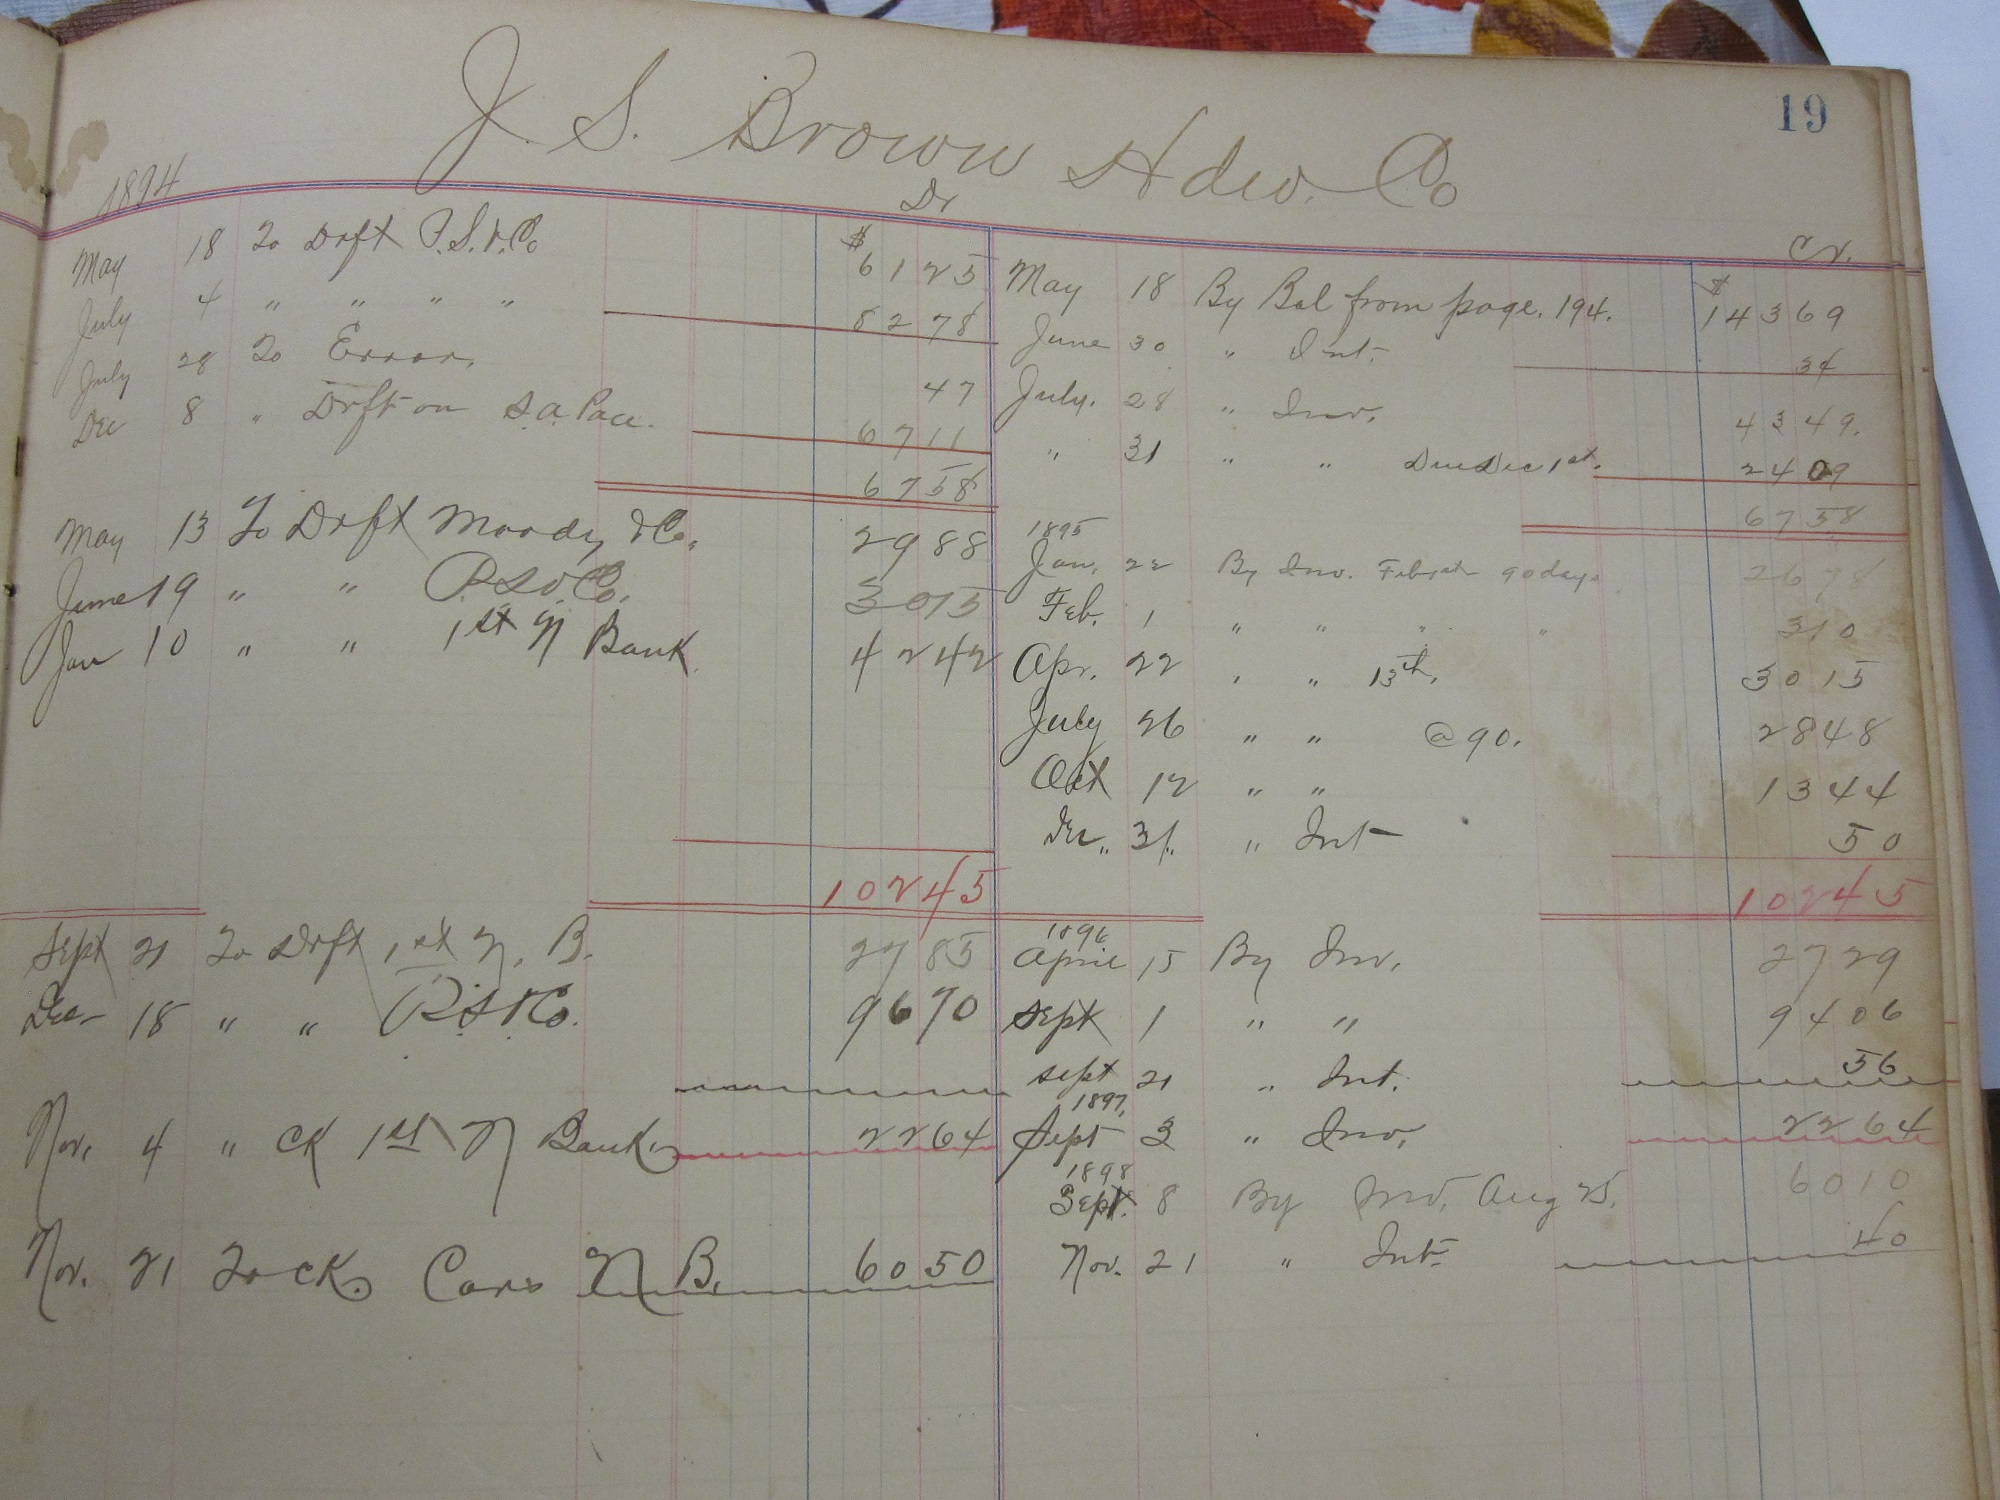 19
J. S. Brown Hdw. Co
1894
Dr
Cr.
May 18 To Drft P.S.V.Co $ 61 25
July 4 " " " " 82 78
July 28 To Error. 47
Dec 8 " Drft on S.A. Pace. 67 11
67 58
May 13 To Drft Moody & Co. 29 88
June 19 " " P.S.V.Co. 30 15
Jan 10 " " 1st N Bank 42 42
102 45
Sept 21 To Drft 1st N. B. 27 85
Dec 18 " " P.S.V.Co. 96 70
Nov. 4 " CK 1st N Bank. 22 64
Nov. 21 To CK. N B. 60 50
May 18 By Bal from page. 194. $ 143 69
June 30 " Int. 34
July. 28 " Inv. 43 49.
" 31 " " Due Dec 1st. 24 09
67 58
1895
Jan. 22 By Inv. Feb 1st 90 days 26 78
Feb. 1 " " " " 3 10
Apr. 22 " " 13th, 30 15
July 26 " " @ 90. 28 48
Oct 12 " " 13 44
Dec. 31. " Int 50
102 45
1896
April 15 By Inv. 27 29
Sept 1 " " 94 06
Sept 21 " Int. 56
1897,
Sept 3 " Inv. 22 64
1898
Sept. 8 By Inv. Aug 25. 60 10
Nov. 21 " Int. 40